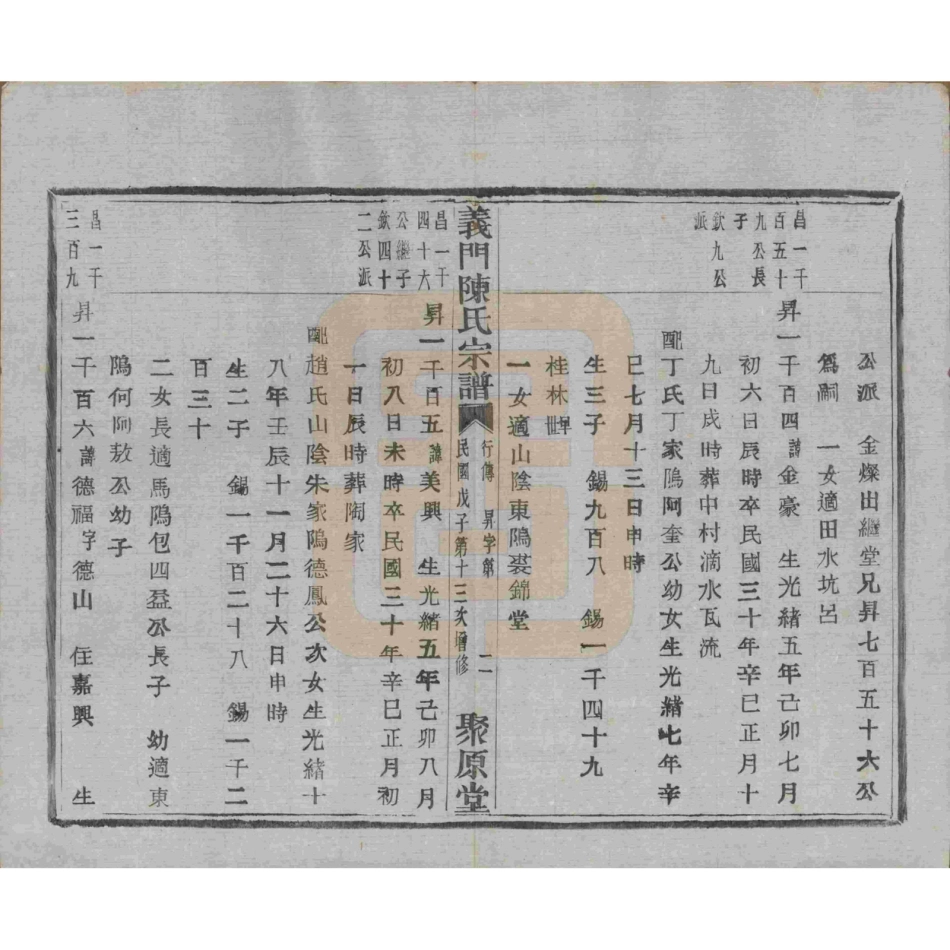 公派　金燦出繼堂兄昇七百五十六公
爲嗣　一女適田水坑呂
昌一千
百五十
九公長
子
欽九公
派
昇一千百四諱金豪　生光緒五年己卯七月
初六日辰時卒民國三十年辛巳正月十
九日戌時葬中村滴水瓦流
配丁氏丁家隖阿奎公幼女生光緒七年辛
巳七月十三日申時
生三子　錫九百八　錫一千四十九
桂林早世
一女適山陰東隖裘錦堂
義門陳氏宗譜
行傳　昇字第　二
民國戊子第十三次增修
聚原堂
昌一千
四十六
公繼子
欽四十
二公派
昇一千百五諱美興　生光緒五年己卯八月
初八日未時卒民國三十年辛巳正月初
十日辰時葬陶家
配趙氏山陰朱家隖德鳳公次女生光緒十
八年壬辰十一月二十六日申時
生二子　錫一千百二十八　錫一千二
百三十
二女長適馬隖包四益公長子　幼適東
隖何阿敖公幼子
昌一千
三百九
昇一千百六諱德福字德山　住嘉興　生